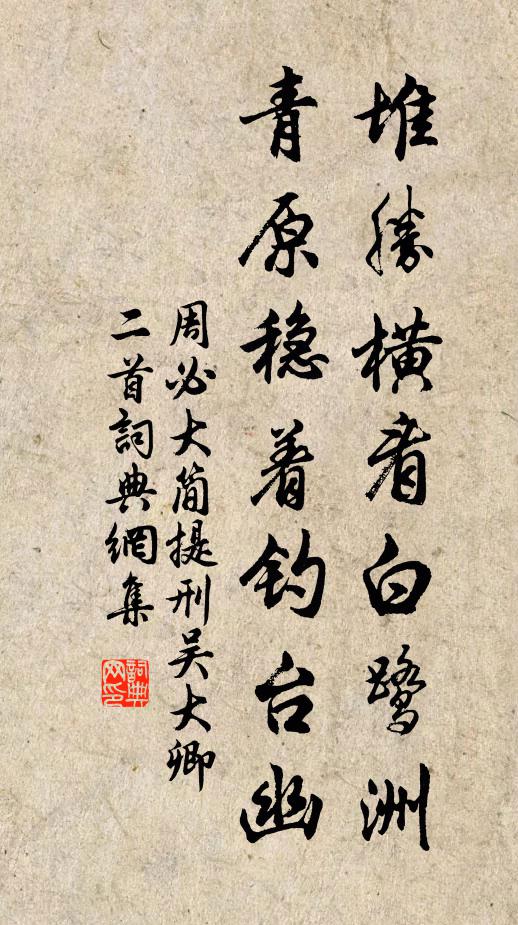 堆勝横看白鹭洲
青原稳着钓台幽
周必大简提刑吴大卿
二首詞典網集
詞典網印